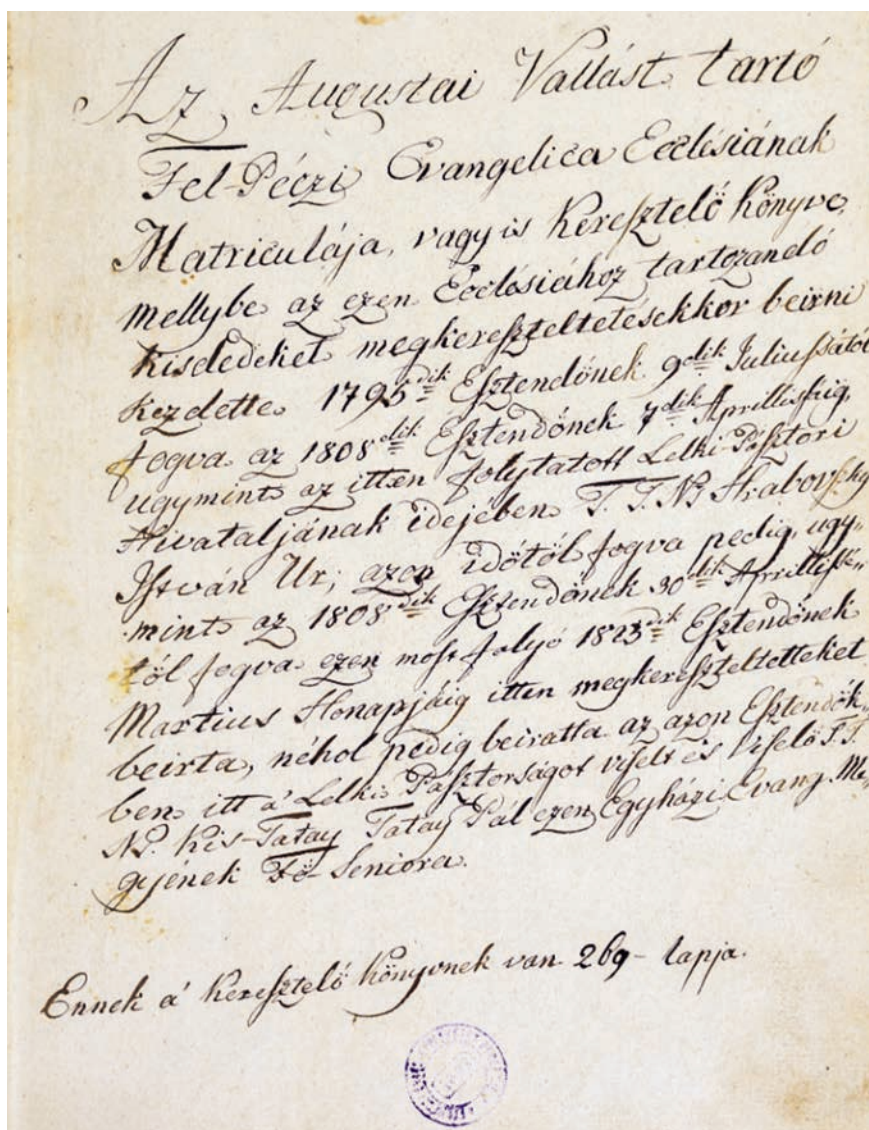 Az Augustai Vallást tartó
Fel-Péczi Evangelica Ecclésiának
Matriculája, vagy is Keresztelő Könyve,
mellybe az ezen Ecclésiához tartozandó
kisdedeket megkereszteltetésekkor beirni
kezdette 1795dik Esztendőnek 9dik Juliussától
fogva az 1808dik Esztendőnek 7dik Aprillisséig,
ugymint az ittен folytatott Lelki-Pásztori
Hivataljának idejében T. T. N. Hrabovszky
István Ur; azon időtől fogva pedig, ugy-
mint az 1808dik Esztendőnek 30dik Aprillissé„
től fogva ezen most folyó 1823dik Esztendőnek
Martius Honapjáig itten megkereszteltetteket
beirta, néhol pedig beiratta az azon Esztendők„
ben itt a' Lelki Pásztorságot viselt és Viselő T. T.
N. Kis-Tatay Tatay Pál ezen Egyházi Evang. Me„
gyének Fő-Seniora.
Ennek a' Keresztelő Könyvnek van 269- lapja.